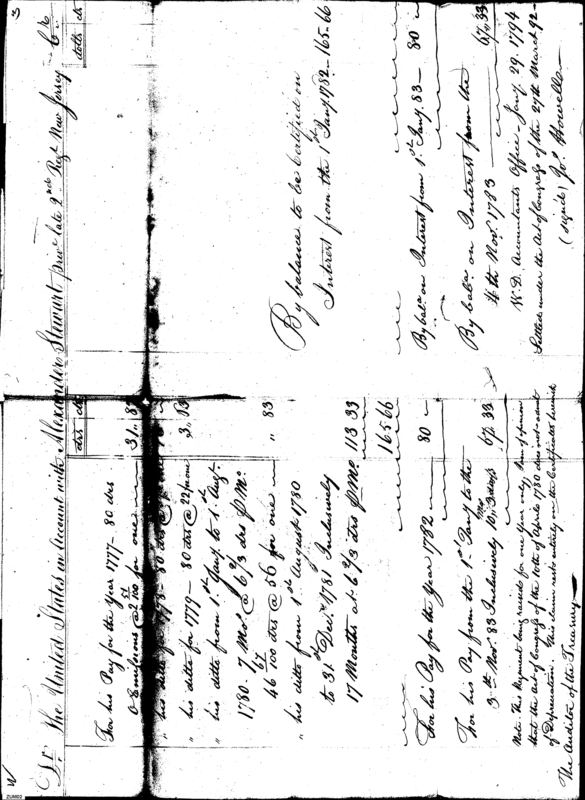 Dr. The United States in Account with Alexander Stewart priv.e late 2nd Regt New Jersey Cr
drs cts
dolls cts
For his Pay for the Year 1777 - 80 drs
" his ditto for 1778 - 80 drs @
" his ditto for 1779 - 80 drs @ 22/ 3.
" his ditto from 1st Jany to 1st Augt
1780. 7 Mos. @ 6 2/3 drs P Mo.
46 67/100 drs @ 56 for one " 83
" his ditto from 1st August 1780
to 31st Decr 1781 Inclusively
17 Months at 6 2/3 drs P Mo. 113 33
165 66
For his Pay for the Year 1782 80 "
For his Pay from the 1st Jany to the
3rd Novr 83 Inclusively 67. 33
Note. This Regiment being raised for one Year only
that the Act of Congress of the 10th of April 1780 does not admit
of Depreciation. This claim rests entirely on the Certificates
The Auditor of the Treasury.
By balance to be Certified on
Interest from the 1st Jany 1782 - 165.66
By balce on Interest from 1st Jany. 83 - 80 "
By balce on Interest from the
4th Novr 1783 67. 33
W.D. Accountants Office - Jany. 29. 1794
Settled under the Act of Congress of the 27th March 92 -
(signed) Jos. Howell
ZU8802